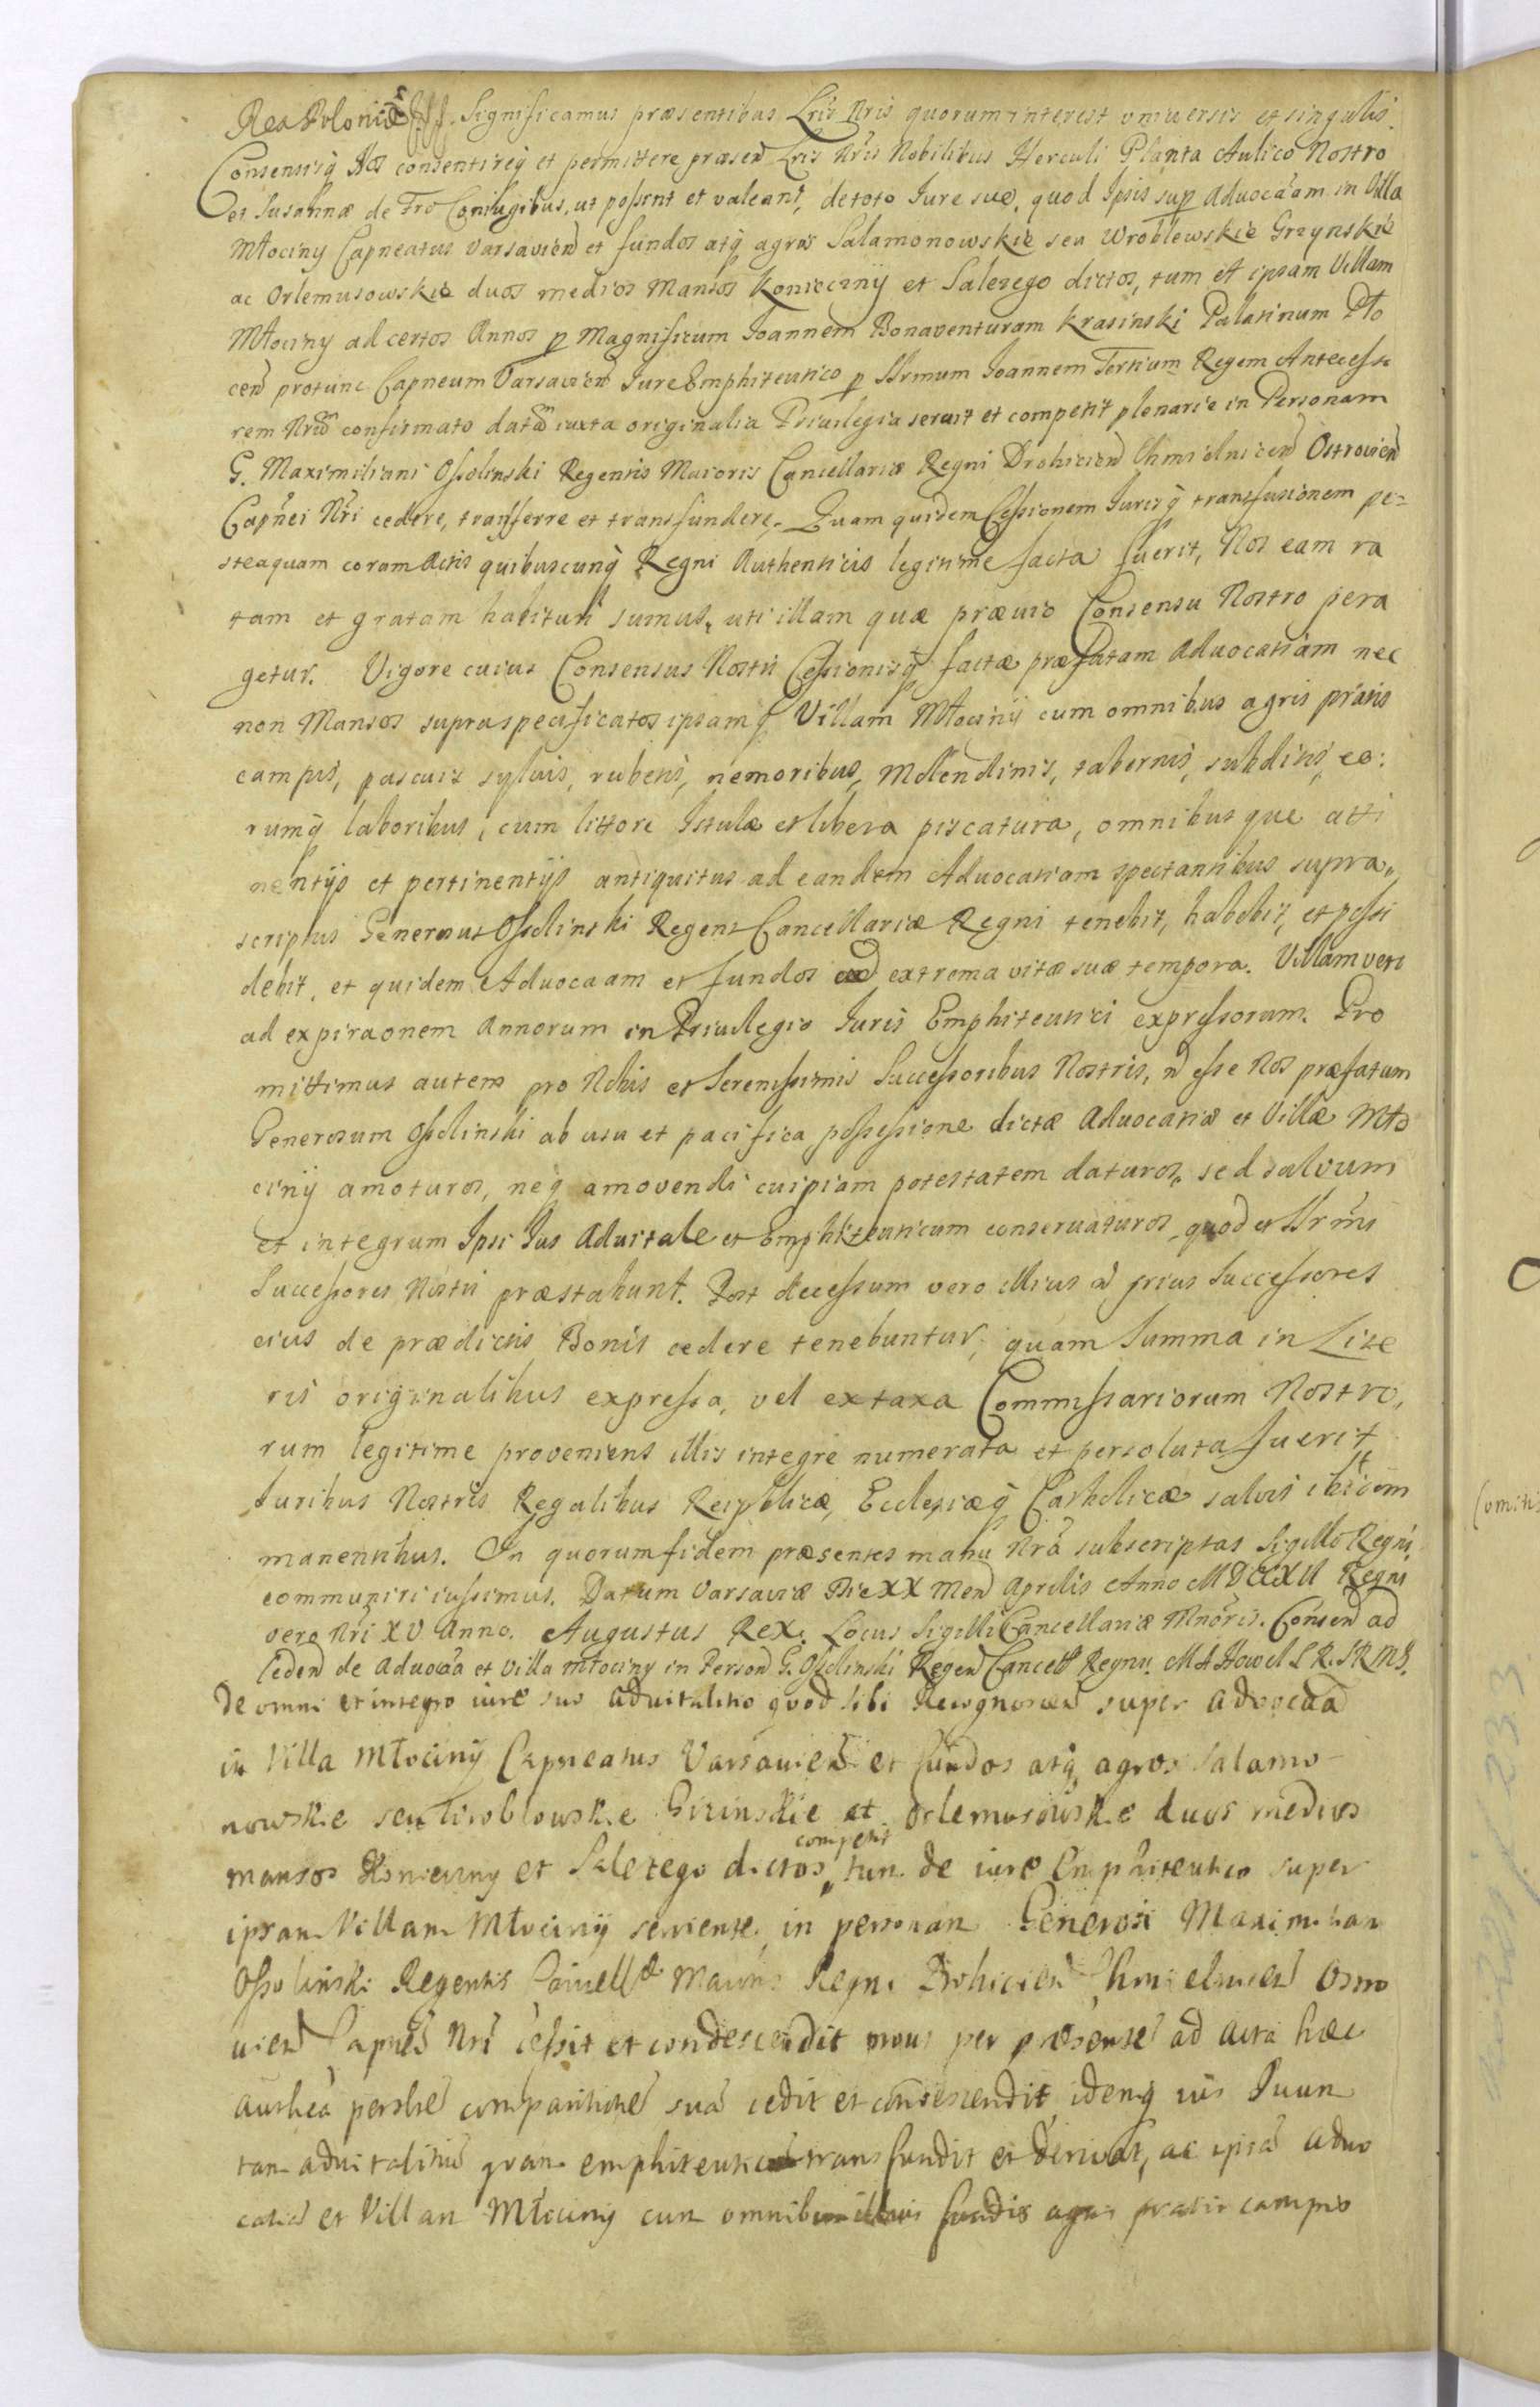 Rex Poloniæ &c. Significamus præsentibus Lris Nris quorum interest universis et singulis.
Consensisq Nos consentireq et permittere præsen Lris Nris Nobilibus Herculi Planta Aulico Nostro
et Susannæ de Fro Coniugibus, ut possint et valeant, de toto Iure suo, quod Ipsis sup Advocãam in Villa
Młociny Capneatus Varsavien et fundos atq agros Salamonowskie seu Wroblewskie Grzynskie
ac Orlemusowskie duos medios Mansos Konieczny et Salezego dictos, tum et ipsam Villam
Młociny ad certos Annos p Magnificum Ioannem Bonaventuram Krasinski Palatinum Pło
cen protunc Capneum Varsavien Iure Emphiteutico p Sermum Ioannem Tertium Regem Antecesso
rem Nrum confirmato datam iuxta originalia Privilegia servit et competit plenarie in Personam
G. Maximiliani Ossolinski Regentis Maioris Cancellariæ Regni Drohicien Chmielnicen Ostrovien
Capnei Nri cedere, transferre et transfundere. Quam quidem Cessionem Iurisq transfusionem po=
steaquam coram Actis quibuscunq Regni Authenticis legitime facta fuerit, Nos eam ra
tam et gratam habituri sumus, uti illam quæ prævio Consensu Nostro pera
getur. Vigore cuius Consensus Nostri Cessionisq factæ præfatam Advocatiam nec
non Mansos supraspecificatos ipsamq Villam Młociny cum omnibus agris pratis
campis, pascuis sylvis, rubetis, nemoribus, Molendinis, tabernis, subditis, eo:
rumq laboribus, cum littore Istulæ et libera piscatura, omnibusque atti
nentijs et pertinentijs antiquitus ad eandem Advocatiam spectantibus supra,,
scriptus Generosus Ossolinski Regens Cancellariæ Regni tenebit, habebit, et possi
debit, et quidem Advocaam et fundos ad extrema vitæ suæ tempora. Villam vero
ad expiraonem Annorum in Privilegio Iuris Emphiteutici expressorum. Pro
mittimus autem pro Nobis et Serenissimis Successoribus Nostris, n esse Nos præfatum
Generosum Ossolinski ab usu et pacifica possessione dictæ Advocatiæ et Villæ Mło
ciny amoturos, neq amovendi cuipiam potestatem daturos, sed salvum
et integrum Ipsi Ius Advitale et Emphiteuticum conservaturos, quod et Srmi
Successores Nostri præstabunt. Post decessum vero illius n prius Successores
eius de prædictis Bonis cedere tenebuntur, quam Summa in Lite
ris originalibus expressa, vel ex taxa Commissariorum Nostro,
rum legitime proveniens illis integre numerata et persoluta fuerit
Iuribus Nostris Regalibus Reipblicæ, Ecclesiæq Catholicæ salvis ibidem
manentibus. In quorum fidem præsentes manu Nra subscriptas Sigillo Regni
communiri iussimus. Datum Varsaviæ Die XX Men Aprilis Anno MDCCXII Regni
vero Nri XV Anno. Augustus Rex. Locus Sigilli Cancellariæ Mnoris. Consen ad
Ceden de Advocãa et Villa Młociny in Person G. Ossolinski Regen Cancell Regni.
De omni et integro iure suo advitalitio quod sibi Recognoscen super Advocãa
in Villa Młociny Capneatus Varsavien et fundos atq agros Salamo
nowskie seu Wroblowskie Grzinskie et Orlemusowskie duos medios
mansos Konieczny et Salezego dictos competit, tum de iure Emphiteutico super
ipsam Villam Młociny serviente, in personam Generosi Maximilian
Ossolinski Regentis Cancellæ Maioris Regni Drohicien Chmielnicen Ostro
vien Capnei Nri cessit et condescendit prout per præsente ad acta hæc
authca persle comparitione sua cedit et condescendit, idemq ius suum
tam advitalitiu quam emphiteuticu transfundit et derivat, ac ipsa advo
catia et Villam Młociny cum omnibus illius fundis agris pratis campis
(omiti